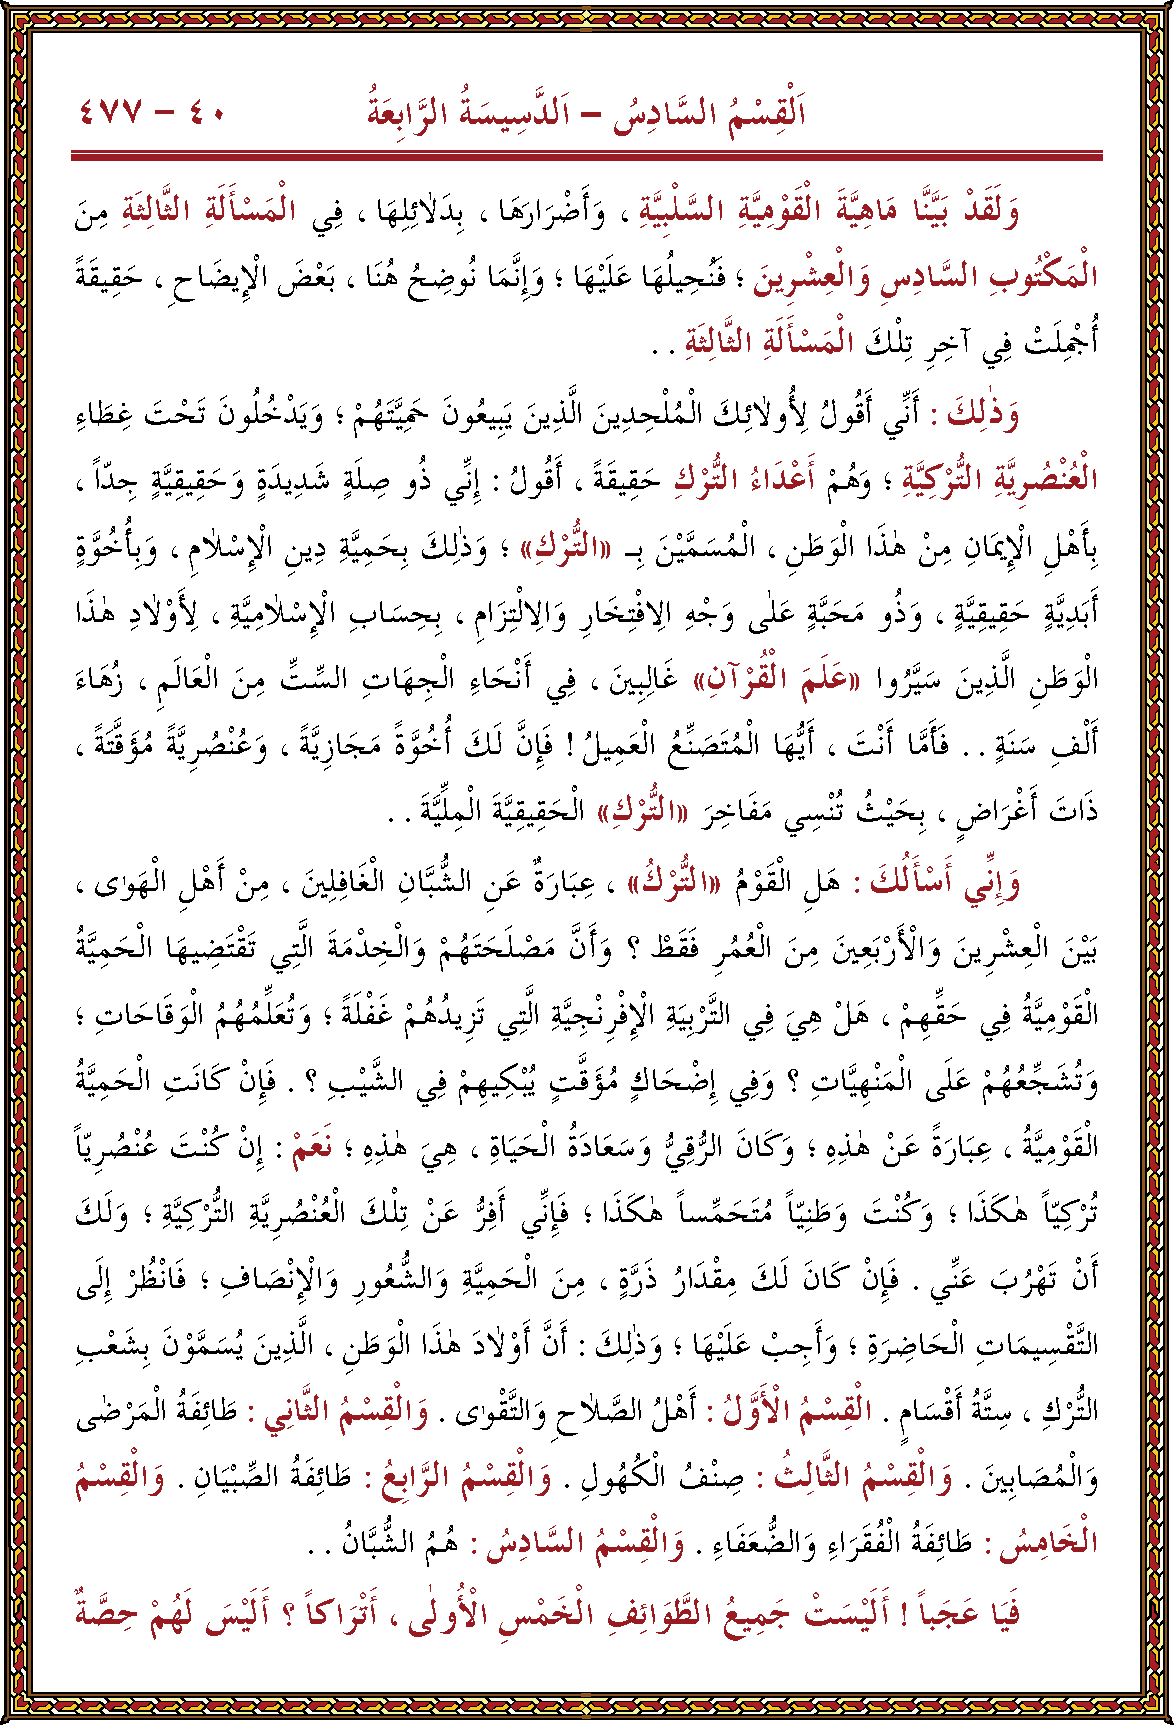 اَلْقِسْمُ السَّادِسُ – اَلدَّسِيسَةُ الرَّابِعَةُ ٤٠ – ٤٧٧
وَلَقَدْ بَيَّنَّا مَاهِيَّةَ الْقَوْمِيَّةِ السَّلْبِيَّةِ ، وَأَضْرَارَهَا ، بِدَلَائِلِهَا ، فِي الْمَسْأَلَةِ الثَّالِثَةِ مِنَ
الْمَكْتُوبِ السَّادِسِ وَالْعِشْرِينَ ؛ فَنُحِيلُهَا عَلَيْهَا ؛ وَإِنَّمَا نُوضِحُ هُنَا ، بَعْضَ الْإِيضَاحِ ، حَقِيقَةً
أُجْمِلَتْ فِي آخِرِ تِلْكَ الْمَسْأَلَةِ الثَّالِثَةِ . .
وَذٰلِكَ : أَنِّي أَقُولُ لِأُولٰئِكَ الْمُلْحِدِينَ الَّذِينَ يَبِيعُونَ حَمِيَّتَهُمْ ؛ وَيَدْخُلُونَ تَحْتَ غِطَاءِ
الْعُنْصُرِيَّةِ التُّرْكِيَّةِ ؛ وَهُمْ أَعْدَاءُ التُّرْكِ حَقِيقَةً ، أَقُولُ : إِنِّي ذُو صِلَةٍ شَدِيدَةٍ وَحَقِيقِيَّةٍ جِدّاً ،
بِأَهْلِ الْإِيمَانِ مِنْ هٰذَا الْوَطَنِ ، الْمُسَمَّيْنَ بِـ «التُّرْكِ» ؛ وَذٰلِكَ بِحَمِيَّةِ دِينِ الْإِسْلَامِ ، وَبِأُخُوَّةٍ
أَبَدِيَّةٍ حَقِيقِيَّةٍ ، وَذُو مَحَبَّةٍ عَلٰى وَجْهِ الِافْتِخَارِ وَالِالْتِزَامِ ، بِحِسَابِ الْإِسْلَامِيَّةِ ، لِأَوْلَادِ هٰذَا
الْوَطَنِ الَّذِينَ سَيَّرُوا «عَلَمَ الْقُرْآنِ» غَالِبِينَ ، فِي أَنْحَاءِ الْجِهَاتِ السِّتِّ مِنَ الْعَالَمِ ، زُهَاءَ
أَلْفِ سَنَةٍ . . فَأَمَّا أَنْتَ ، أَيُّهَا الْمُتَصَنِّعُ الْعَمِيلُ ! فَإِنَّ لَكَ أُخُوَّةً مَجَازِيَّةً ، وَعُنْصُرِيَّةً مُؤَقَّتَةً ،
ذَاتَ أَغْرَاضٍ ، بِحَيْثُ تُنْسِي مَفَاخِرَ «التُّرْكِ» الْحَقِيقِيَّةَ الْمِلِّيَّةَ . .
وَإِنِّي أَسْأَلُكَ : هَلِ الْقَوْمُ «التُّرْكُ» ، عِبَارَةٌ عَنِ الشُّبَّانِ الْغَافِلِينَ ، مِنْ أَهْلِ الْهَوٰى ،
بَيْنَ الْعِشْرِينَ وَالْأَرْبَعِينَ مِنَ الْعُمُرِ فَقَطْ ؟ وَأَنَّ مَصْلَحَتَهُمْ وَالْخِدْمَةَ الَّتِي تَقْتَضِيهَا الْحَمِيَّةُ
الْقَوْمِيَّةُ فِي حَقِّهِمْ ، هَلْ هِيَ فِي التَّرْبِيَةِ الْإِفْرِنْجِيَّةِ الَّتِي تَزِيدُهُمْ غَفْلَةً ؛ وَتُعَلِّمُهُمُ الْوَقَاحَاتِ ؛
وَتُشَجِّعُهُمْ عَلَى الْمَنْهِيَّاتِ ؟ وَفِي إِضْحَاكٍ مُؤَقَّتٍ يُبْكِيهِمْ فِي الشَّيْبِ ؟ . فَإِنْ كَانَتِ الْحَمِيَّةُ
الْقَوْمِيَّةُ ، عِبَارَةً عَنْ هٰذِهِ ؛ وَكَانَ الرُّقِيُّ وَسَعَادَةُ الْحَيَاةِ ، هِيَ هٰذِهِ ؛ نَعَمْ : إِنْ كُنْتَ عُنْصُرِيّاً
تُرْكِيّاً هٰكَذَا ؛ وَكُنْتَ وَطَنِيّاً مُتَحَمِّساً هٰكَذَا ؛ فَإِنِّي أَفِرُّ عَنْ تِلْكَ الْعُنْصُرِيَّةِ التُّرْكِيَّةِ ؛ وَلَكَ
أَنْ تَهْرُبَ عَنِّي . فَإِنْ كَانَ لَكَ مِقْدَارُ ذَرَّةٍ ، مِنَ الْحَمِيَّةِ وَالشُّعُورِ وَالْإِنْصَافِ ؛ فَانْظُرْ إِلَى
التَّقْسِيمَاتِ الْحَاضِرَةِ ؛ وَأَجِبْ عَلَيْهَا ؛ وَذٰلِكَ : أَنَّ أَوْلَادَ هٰذَا الْوَطَنِ ، الَّذِينَ يُسَمَّوْنَ بِشَعْبِ
التُّرْكِ ، سِتَّةُ أَقْسَامٍ . الْقِسْمُ الْأَوَّلُ : أَهْلُ الصَّلَاحِ وَالتَّقْوٰى . وَالْقِسْمُ الثَّانِي : طَائِفَةُ الْمَرْضٰى
وَالْمُصَابِينَ . وَالْقِسْمُ الثَّالِثُ : صِنْفُ الْكُهُولِ . وَالْقِسْمُ الرَّابِعُ : طَائِفَةُ الصِّبْيَانِ . وَالْقِسْمُ
الْخَامِسُ : طَائِفَةُ الْفُقَرَاءِ وَالضُّعَفَاءِ . وَالْقِسْمُ السَّادِسُ : هُمُ الشُّبَّانُ . .
فَيَا عَجَباً ! أَلَيْسَتْ جَمِيعُ الطَّوَائِفِ الْخَمْسِ الْأُولٰى ، أَتْرَاكاً ؟ أَلَيْسَ لَهُمْ حِصَّةٌ